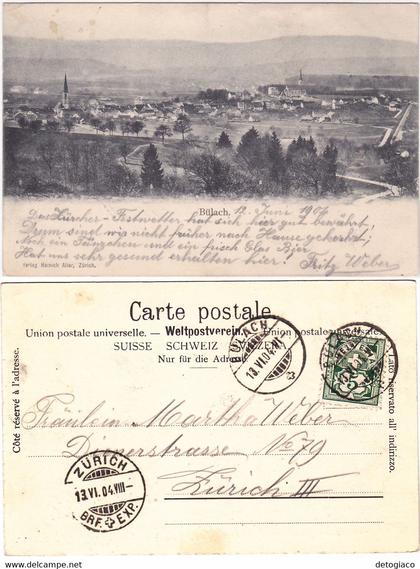 Bülach, 12. Juni 1904.
Das Zürcher-Festwetter hat sich hier gut bewährt,
Drum sind wir nicht früher nach Hause gekehrt;
Noch ein Tänzchen und ein frisch Glas Bier,
Hat uns sehr gesund erhalten hier!
Fritz Weber
Verlag Heinrich Aller, Zürich.
Carte postale.
Union postale universelle. — Weltpostverein. — Unione postale universale.
SUISSE SCHWEIZ SVIZZERA
Nur für die Adresse
Côté réservé à l'adresse.
Lato riservato all' indirizzo.
BÜLACH
13.VI.04.VI
Fräulein Martha Weber
Dienerstrasse No 79
Zürich III
ZÜRICH
13.VI.04.VIII
BRF. EXP.